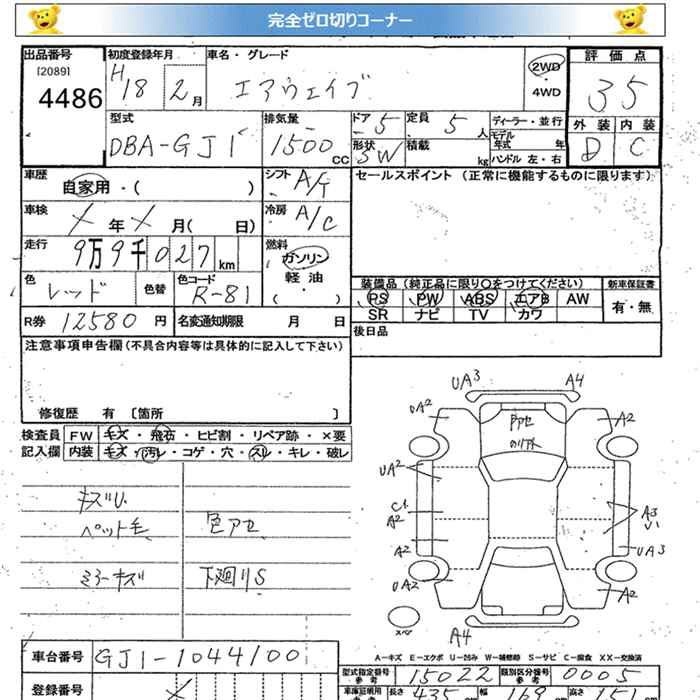 完全ゼロ切りコーナー
出品番号
[2089]
4486
初度登録年月
H18 2月
車名・グレード
エアウェイブ
2WD
・
4WD
評価点
35
型式
DBA-GJ1
排気量
1500cc
ドア 5
定員 5人
形状 SW
積載 kg
ディーラー・並行
モデル年式 年
ハンドル 左・右
外装 内装
D C
車歴
自家用・( )
シフト A/T
セールスポイント (正常に機能するものに限ります)
車検
年 月( 日)
冷房 A/C
走行
9万9千027km
燃料
ガソリン
軽油
( )
色
レッド
色替
色コード
R-81
装備品 (純正品に限り○をつけてください)
新車保証書
PS PW ABS エアB AW
SR ナビ TV カワ
有・無
R券 12580円
名変通知期限 月 日
後日品
注意事項申告欄 (不具合内容等は具体的に記入して下さい)
修復歴 有 [箇所 ]
検査員
記入欄
FW キズ・飛石・ヒビ割・リペア跡・×要
内装 キズ・汚レ・コゲ・穴・スレ・キレ・破レ
キズU
ペット毛 色アセ
ミラーキズ 下廻りS
UA3 A4
UA2 A2
UA2
C1
A2
A3
A2
UA3
UA2 A2
A4
スペア
A-キズ E-エクボ U-凹み W-補修跡 S-サビ C-腐食 XX-交換済
車台番号 GJ1-1044100
登録番号
型式指定番号
参考
15022
類別区分番号
参考
0005
車庫証明用
参考
長さ 435
幅
高さ 151